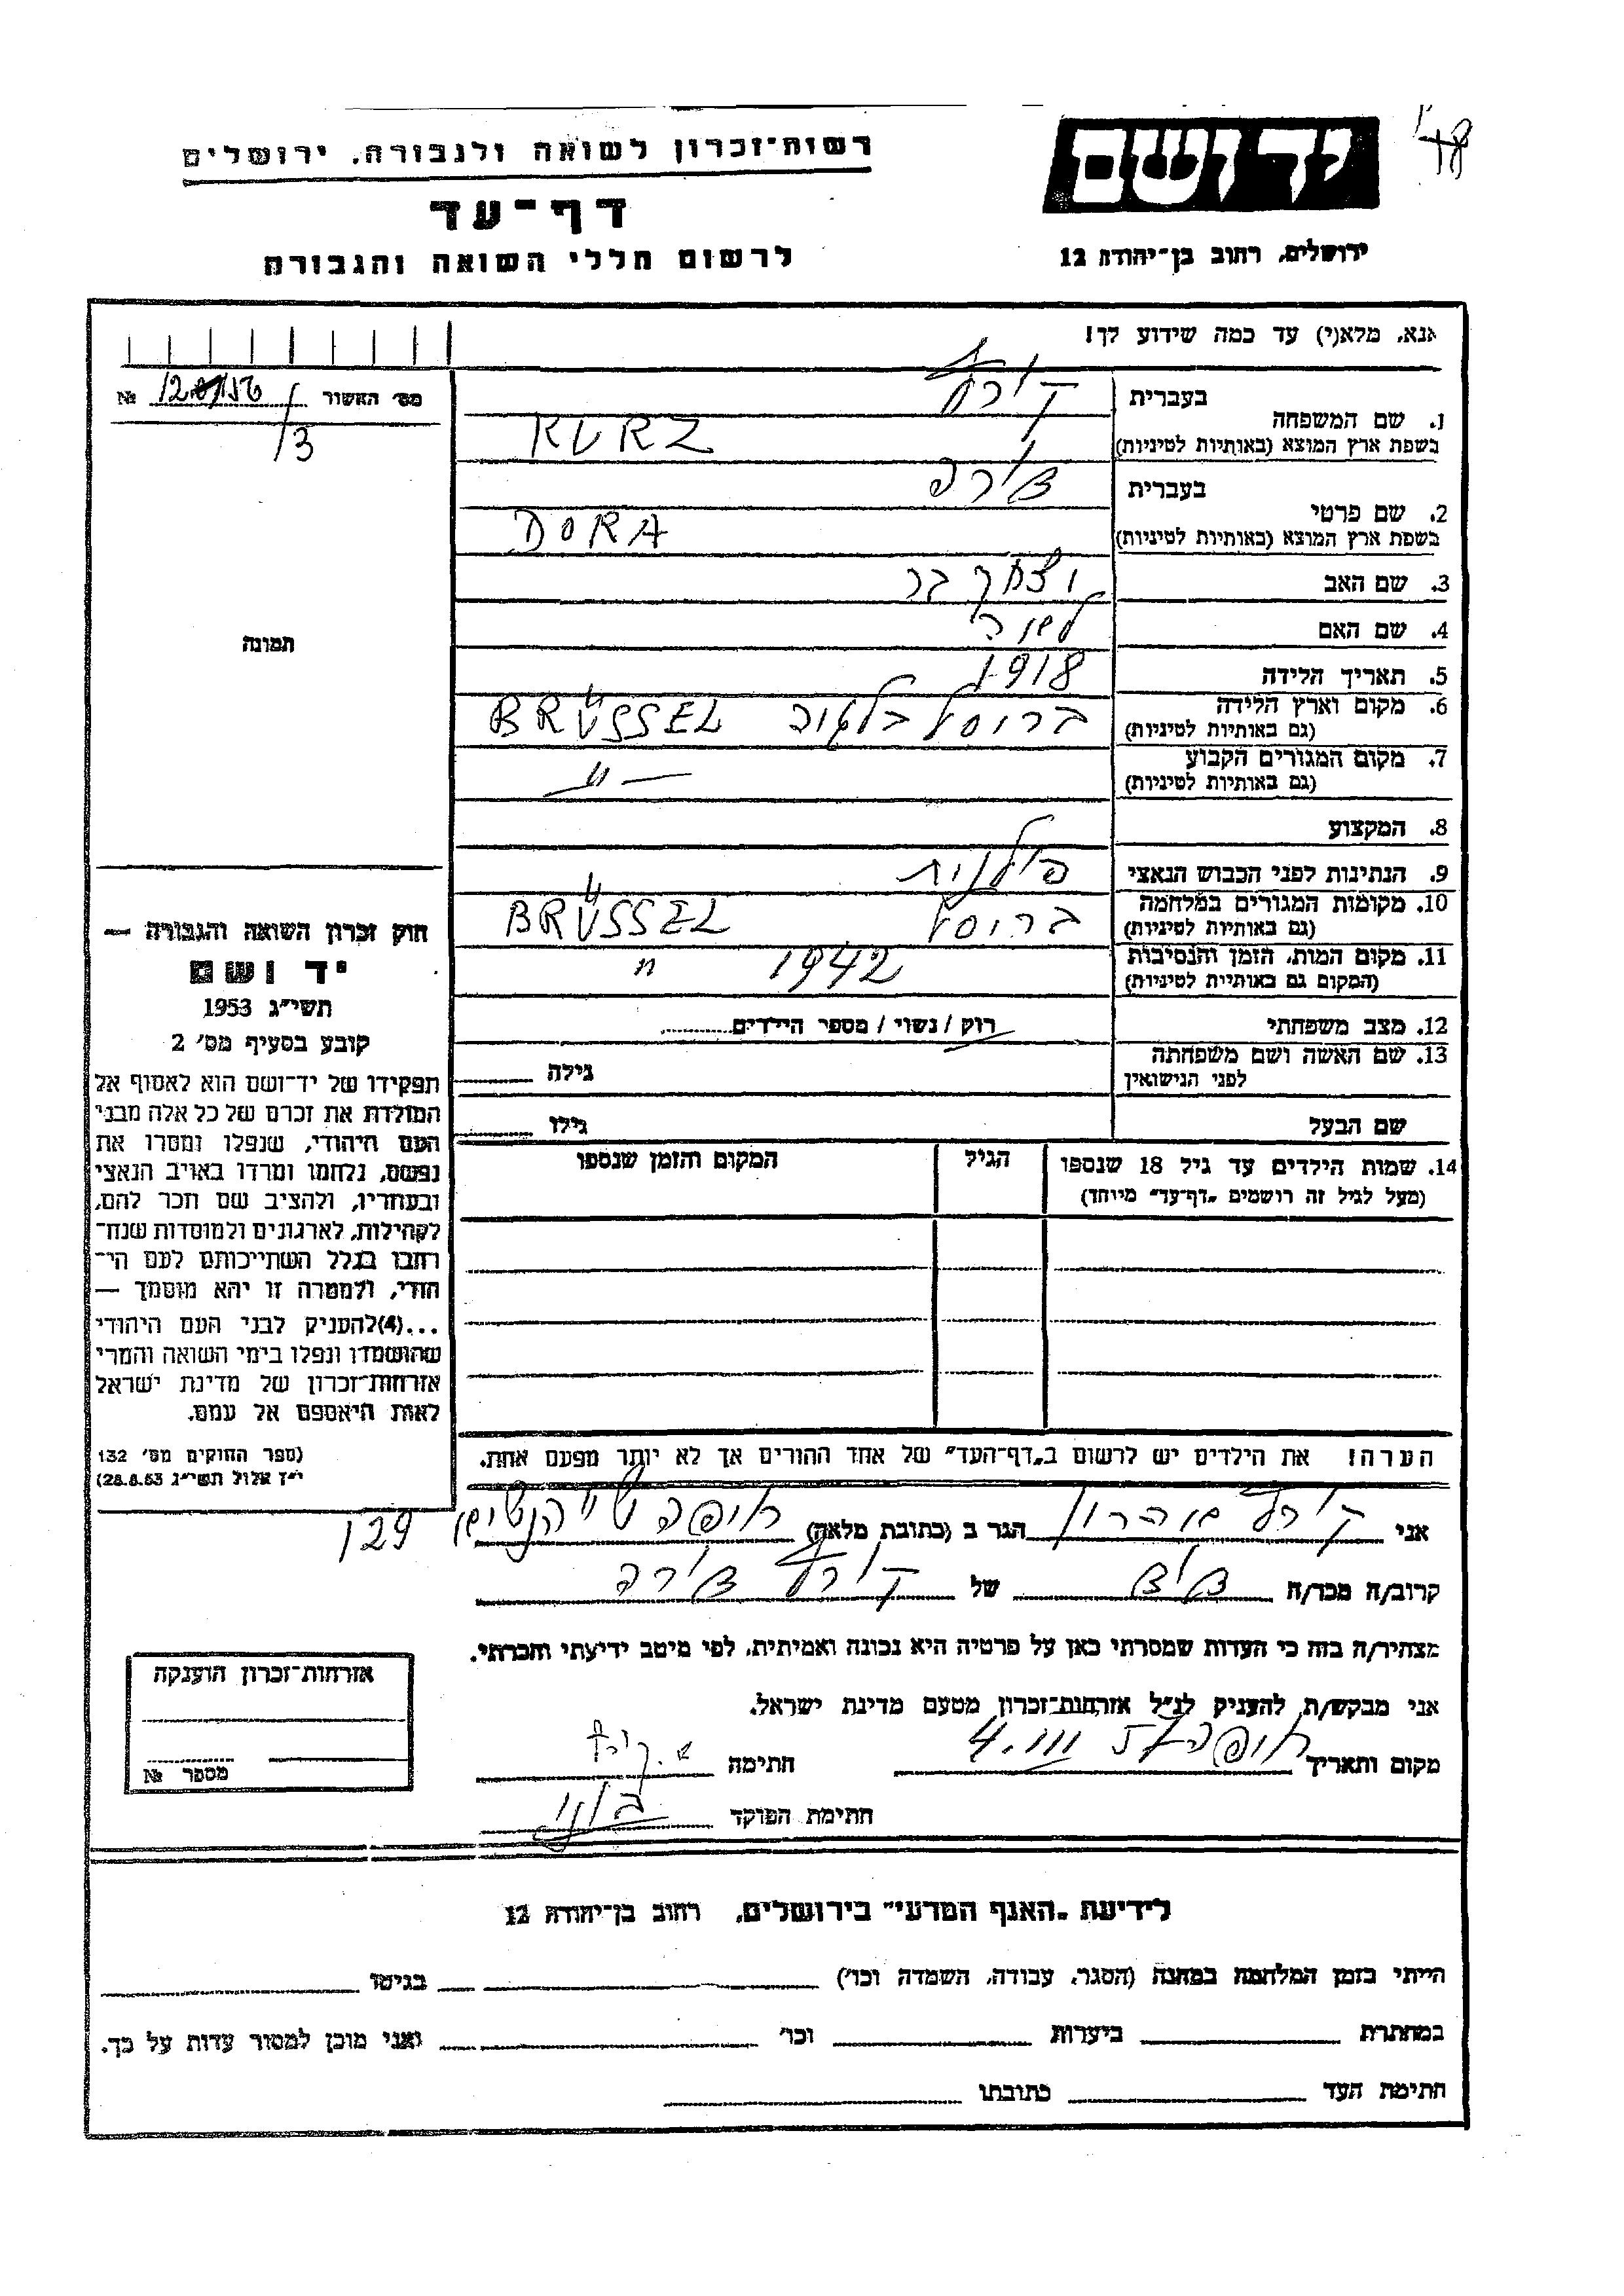 יד ושם
רשות־זכרון לשואה ולגבורה, ירושלים
דף־עד
לרשום חללי השואה והגבורה
ירושלים, רחוב בן־יהודה 12
אנא, מלא(י) עד כמה שידוע לך!
מס׳ האשור №
/3
1. שם המשפחה
בעברית
בשפת ארץ המוצא (באותיות לטיניות) KURZ
2. שם פרטי
בעברית
בשפת ארץ המוצא (באותיות לטיניות) DORA
3. שם האב
4. שם האם
5. תאריך הלידה 1918
6. מקום וארץ הלידה
(גם באותיות לטיניות) ברוסל BRÜSSEL
7. מקום המגורים הקבוע
(גם באותיות לטיניות) — " —
8. המקצוע
9. הנתינות לפני הכבוש הנאצי
10. מקומות המגורים במלחמה
(גם באותיות לטיניות) ברוסל BRÜSSEL
11. מקום המות, הזמן והנסיבות
(המקום גם באותיות לטיניות) 1942 "
12. מצב משפחתי רוק / נשוי / מספר הילדים
13. שם האשה ושם משפחתה
לפני הנישואין גילה
שם הבעל גילו
14. שמות הילדים עד גיל 18 שנספו הגיל המקום והזמן שנספו
(מעל לגיל זה רושמים „דף־עד” מיוחד)
הערה! את הילדים יש לרשום ב„דף־העד” של אחד ההורים אך לא יותר מפעם אחת.
תמונה
חוק זכרון השואה והגבורה —
יד ושם
תשי״ג 1953
קובע בסעיף מס׳ 2
תפקידו של יד־ושם הוא לאסוף אל
המולדת את זכרם של כל אלה מבני
העם היהודי, שנפלו ומסרו את
נפשם, נלחמו ומרדו באויב הנאצי
ובעוזריו, ולהציב שם וזכר להם,
לקהילות, לארגונים ולמוסדות שנח־
רבו בגלל השתייכותם לעם הי־
הודי, ולמטרה זו יהא מוסמך —
...(4) להעניק לבני העם היהודי
שהושמדו ונפלו בימי השואה והמרי
אזרחות־זכרון של מדינת ישראל
לאות היאספם אל עמם.
(ספר החוקים מס׳ 132
י״ז אלול תשי״ג 28.8.53)
אני קורץ הגר ב (כתובת מלאה) חיפה 129
קרוב/ה מכר/ה של קורץ
מצהיר/ה בזה כי העדות שמסרתי כאן על פרטיה היא נכונה ואמיתית, לפי מיטב ידיעתי והכרתי.
אני מבקש/ת להעניק לנ״ל אזרחות־זכרון מטעם מדינת ישראל.
מקום ותאריך חיפה 4.III חתימה
חתימת הפוקד
אזרחות־זכרון הוענקה
מספר №
לידיעת „האגף המדעי” בירושלים, רחוב בן־יהודה 12
הייתי בזמן המלחמה במחנה (הסגר, עבודה, השמדה וכו׳) בגיטו
במחתרת ביערות וכו׳ ואני מוכן למסור עדות על כך.
חתימת העד כתובתו